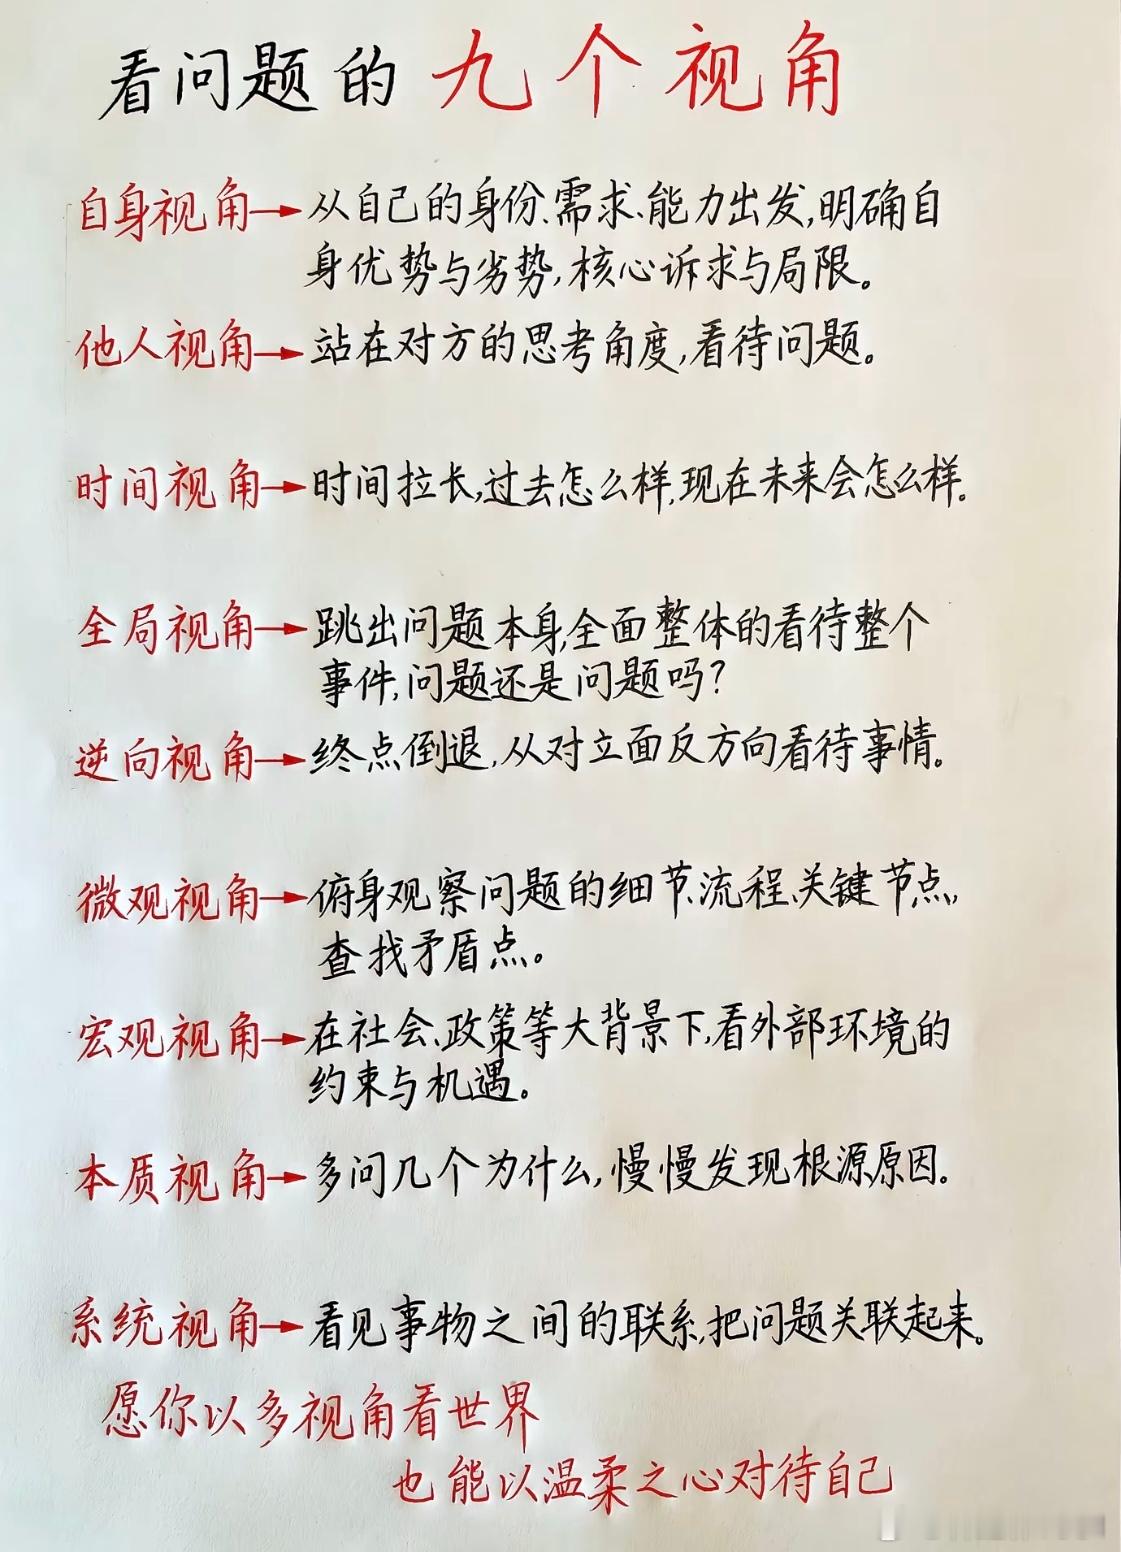 看问题的九个视角
自身视角→从自己的身份、需求、能力出发,明确自
身优势与劣势,核心诉求与局限。
他人视角→站在对方的思考角度,看待问题。
时间视角→时间拉长,过去怎么样,现在未来会怎么样。
全局视角→跳出问题本身,全面整体的看待整个
事件,问题还是问题吗?
逆向视角→终点倒退,从对立面反方向看待事情。
微观视角→俯身观察问题的细节、流程、关键节点,
查找矛盾点。
宏观视角→在社会、政策等大背景下,看外部环境的
约束与机遇。
本质视角→多问几个为什么,慢慢发现根源原因。
系统视角→看见事物之间的联系,把问题关联起来。
愿你以多视角看世界
也能以温柔之心对待自己